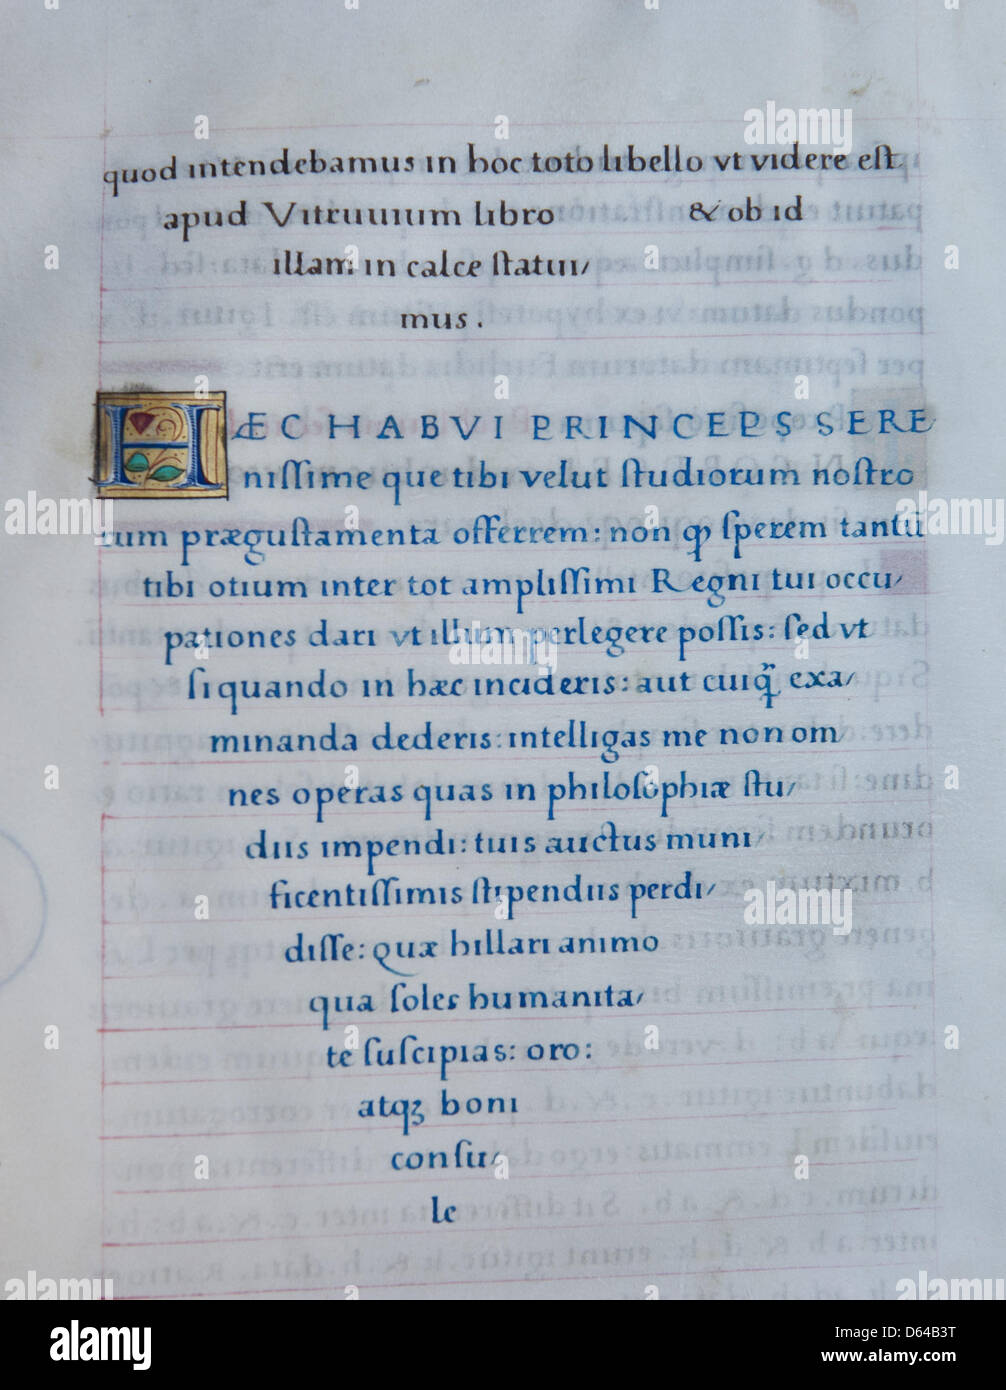 quod intendebamus in hoc toto libello vt videre eſt
apud Vitruuium libro & ob id
illam in calce ſtatui/
mus.
HÆC HABVI PRINCEPS SERE/
niſſime que tibi velut ſtudiorum noſtro
rum præguſtamenta offerrem: non ꝙ ſperem tantū
tibi otium inter tot ampliſſimi Regni tui occu/
pationes dari vt illum perlegere poſſis: ſed vt
ſi quando in hæc incideris: aut cuiꝗ̃ exa/
minanda dederis: intelligas me non om/
nes operas quas in philoſophiæ ſtu/
diis impendi: tuis auctus muni/
ficentiſſimis ſtipendiis perdi/
diſſe: quæ hillari animo
qua ſoles humanita/
te ſuſcipias: oro:
atqꝫ boni
conſu/
le
alamy
Image ID: D64B3T
www.alamy.com